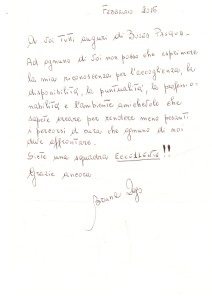 FEBBRAIO 2016
A Voi Tutti auguri di Buona Pasqua.
Ad ognuno di Voi non posso che esprimere
la mia riconoscenza per l'accoglienza, la
disponibilità, la puntualità, la professio-
nabilità e l'ambiente amichevole che
sapete creare per rendere meno pesanti
i percorsi di cura che ognuno di noi
deve affrontare.
Siete una squadra ECCELLENTE!!
Grazie ancora